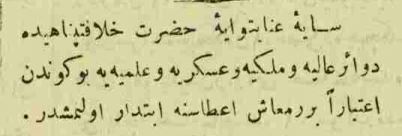 سایهٔ عنایتوایهٔ حضرت خلافتپناهیده
دوائر عالیه و ملکیه و عسکریه و علمیه‌یه بو کوندن
اعتباراً بررمعاش اعطاسنه ابتدار اولنمشدر .